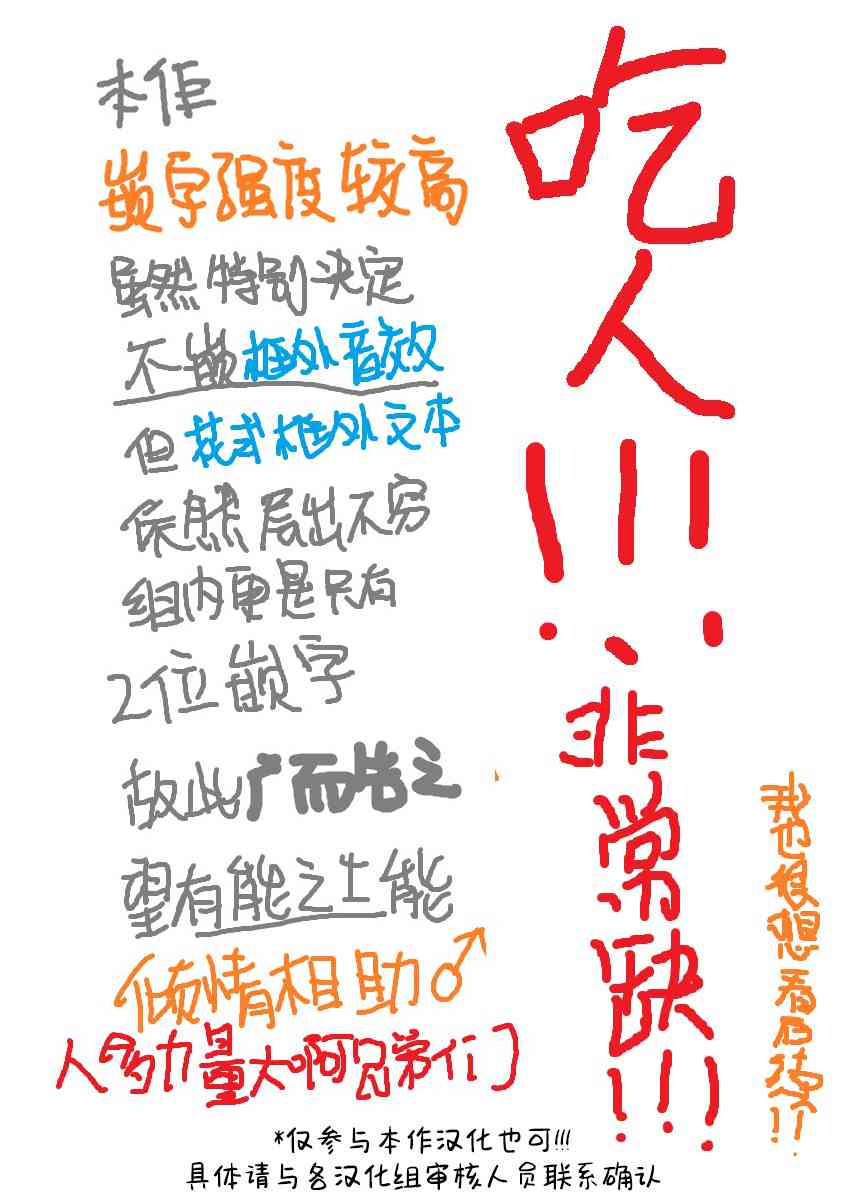 本作
嵌字强度较高
虽然特别决定
不嵌框外音效
但花式框外文本
依然层出不穷
组内更是只有
2位嵌字
故此广而告之
望有能之士能
倾情相助♂
人多力量大啊兄弟们
吃人!!!
非常缺!!!
我也很想看后续!!
*仅参与本作汉化也可!!!
具体请与各汉化组审核人员联系确认